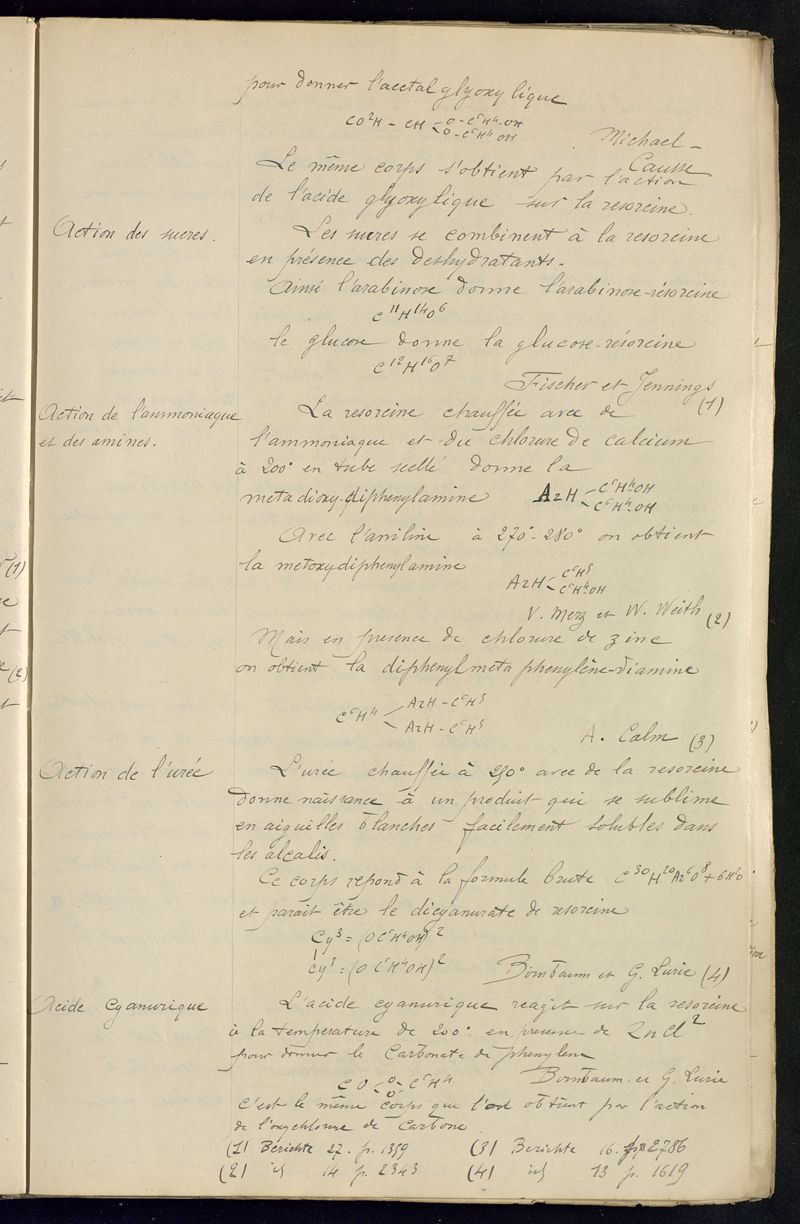 pour donner l'acetal glyoxylique
CO²H - CH < O - C⁶H⁴ - OH
O - C⁶H⁴ OH
Michael -
Causse
Le même corps s'obtient par l'action
de l'acide glyoxylique sur la resorcine.
Action des sucres.
Les sucres se combinent à la resorcine
en présence des deshydratants.
Ainsi l'arabinose donne l'arabinose-résorcine
C¹¹H¹⁴O⁶
le glucose donne la glucose-résorcine
C¹²H¹⁶O⁷
Fischer et Jennings
(1)
Action de l'ammoniaque
et des amines.
La resorcine chauffée avec de
l'ammoniaque et du chlorure de calcium
à 200° en tube scellé donne la
metadioxy-diphenylamine AzH < C⁶H⁴OH
C⁶H⁴-OH
Avec l'aniline à 270°-280° on obtient
la metoxydiphenylamine
AzH < C⁶H⁵
C⁶H⁴-OH
V. Merz et W. Weith (2)
Mais en presence de chlorure de zinc
on obtient la diphenylmetaphenylène-diamine
C⁶H⁴ < AzH - C⁶H⁵
AzH - C⁶H⁵
A. Calm (3)
Action de l'urée
L'urée chauffée à 250° avec de la resorcine
donne naissance à un produit qui se sublime
en aiguilles blanches facilement solubles dans
les alcalis.
Ce corps repond à la formule brute C³⁰H²⁰Az⁶O⁸+6H²O.
et parait être le dicyanurate de resorcine
Cy³ = (OC⁶H⁴OH)²
Cy³ = (O C⁶H⁴OH)²
Birnbaum et G. Lurie (4)
Acide Cyanurique
L'acide cyanurique reagit sur la resorcine
à la temperature de 200° en presence de ZnCl²
pour donner le Carbonate de phenylene
CO < O O > C⁶H⁴
Birnbaum et G. Lurie
C'est le même corps que l'on obtient par l'action
de l'oxychlorure de Carbone
(1) Berichte 27. p. 1359
(3) Berichte 16. p. 2786
(2) id 14 p. 2343
(4) id 13 p. 1619